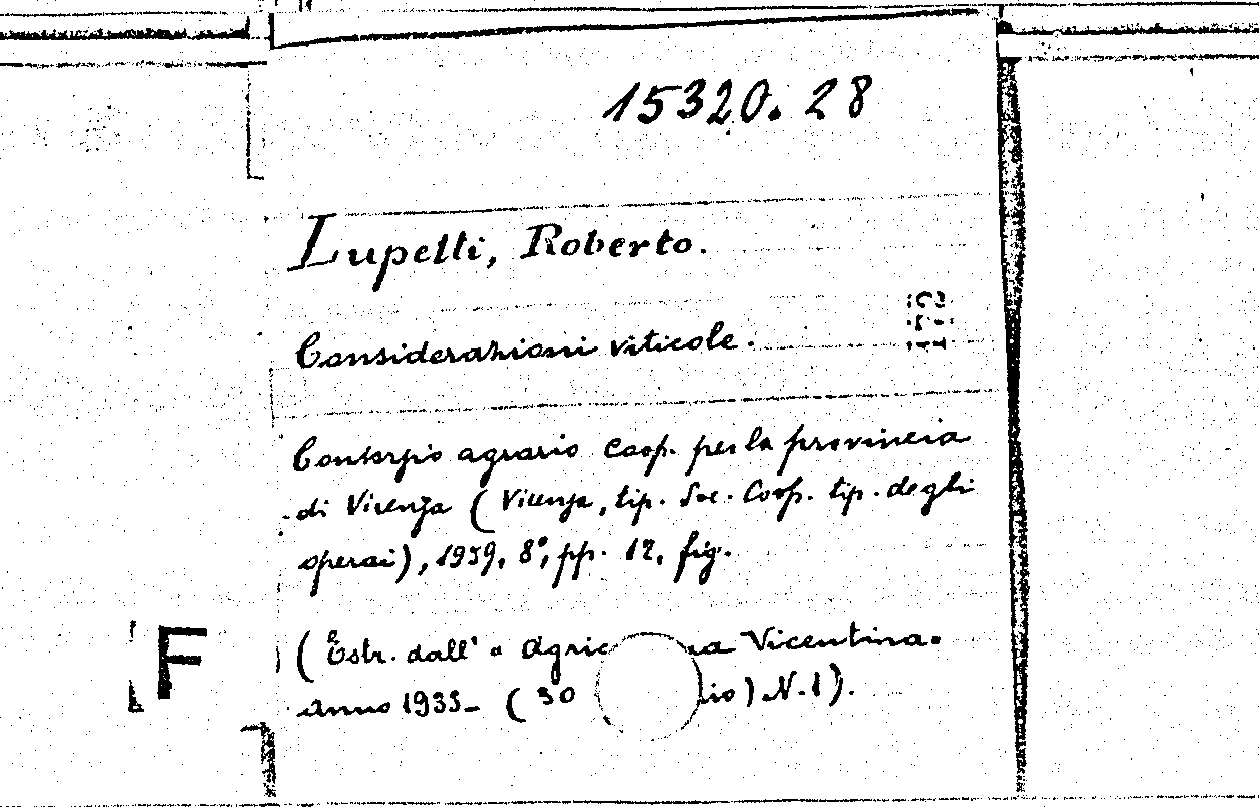 15320. 28
Lupetti, Roberto.
Considerazioni viticole.
Consorzio agrario coop. per la provincia
di Vicenza (Vicenza, tip. Soc. Coop. tip. degli
operai), 1939. 8°, pp. 12, fig.
(Estr. dall' « Vicentina.
anno 1935- (30 N. 1).
F